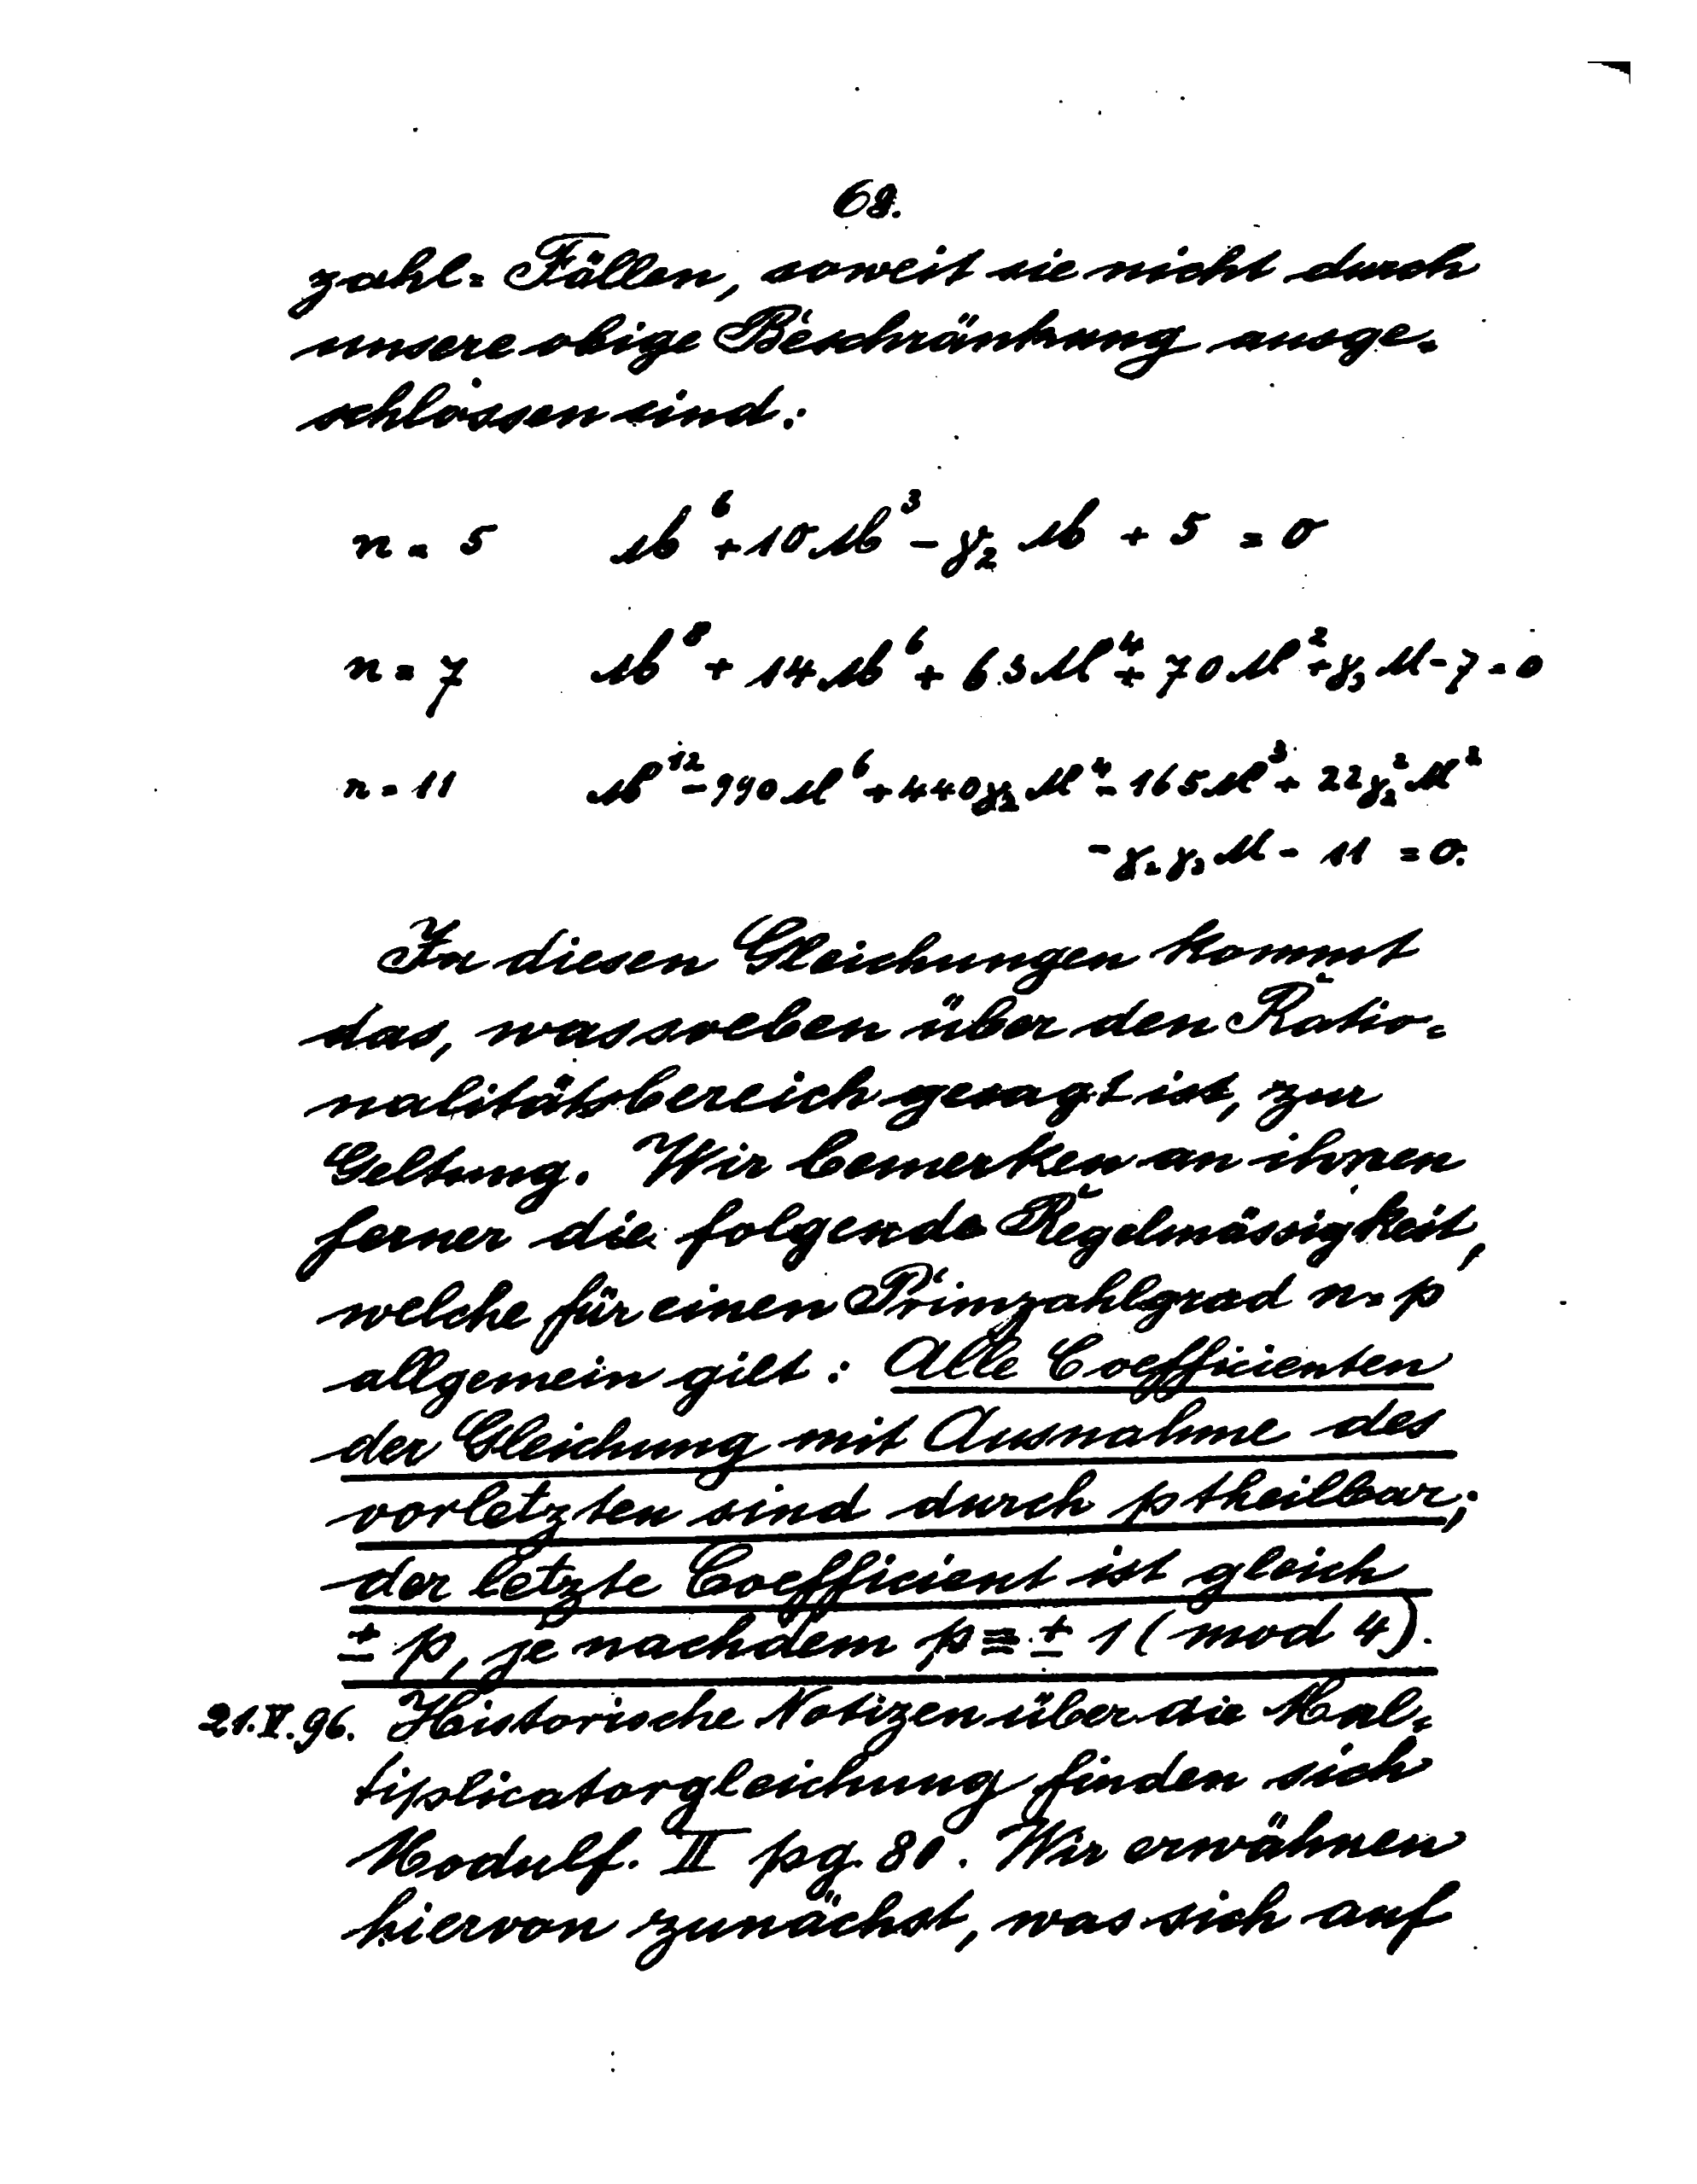 68.
zahl= Fällen, soweit sie nicht durch
unsere obige Beschränkung ausge=
schlossen sind:
n = 5   M^6 + 10 M^3 - γ_2 M + 5 = 0
n = 7   M^8 + 14 M^6 + 63 M^4 + 70 M^2 + γ_3 M - 7 = 0
n = 11   M^12 - 990 M^6 + 440 γ_2 M^4 - 165 M^3 + 22 γ_2^2 M^2
- γ_2 γ_3 M - 11 = 0.
In diesen Gleichungen kommt
das, was soeben über den Ratio=
nalitätsbereich gesagt ist, zur
Geltung. Wir bemerken an ihnen
ferner die folgende Regelmässigkeit,
welche für einen Primzahlgrad n = p
allgemein gilt: Alle Coefficienten
der Gleichung mit Ausnahme des
vorletzten sind durch p theilbar;
der letzte Coefficient ist gleich
± p, je nachdem p ≡ ± 1 (mod 4).
21.V.96. Historische Notizen über die Mul=
tiplicatorgleichung finden sich
Modulf. II pg. 80. Wir erwähnen
hiervon zunächst, was sich auf